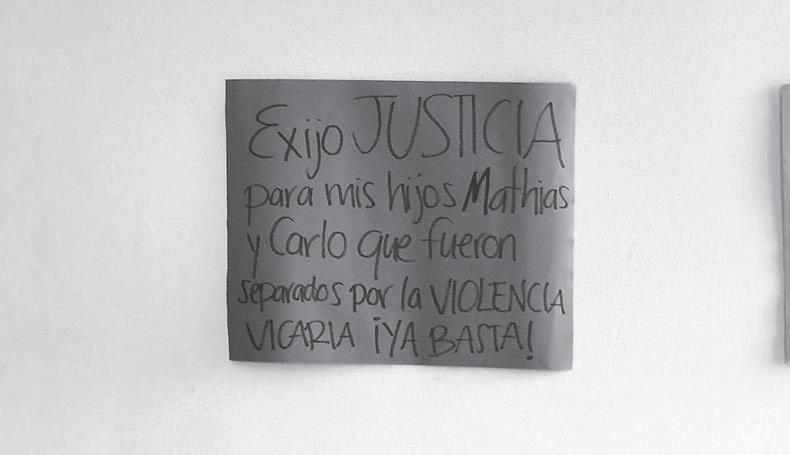 Exijo JUSTICIA
para mis hijos Mathias
y Carlo que fueron
separados por la VIOLENCIA
VICARIA ¡YA BASTA!